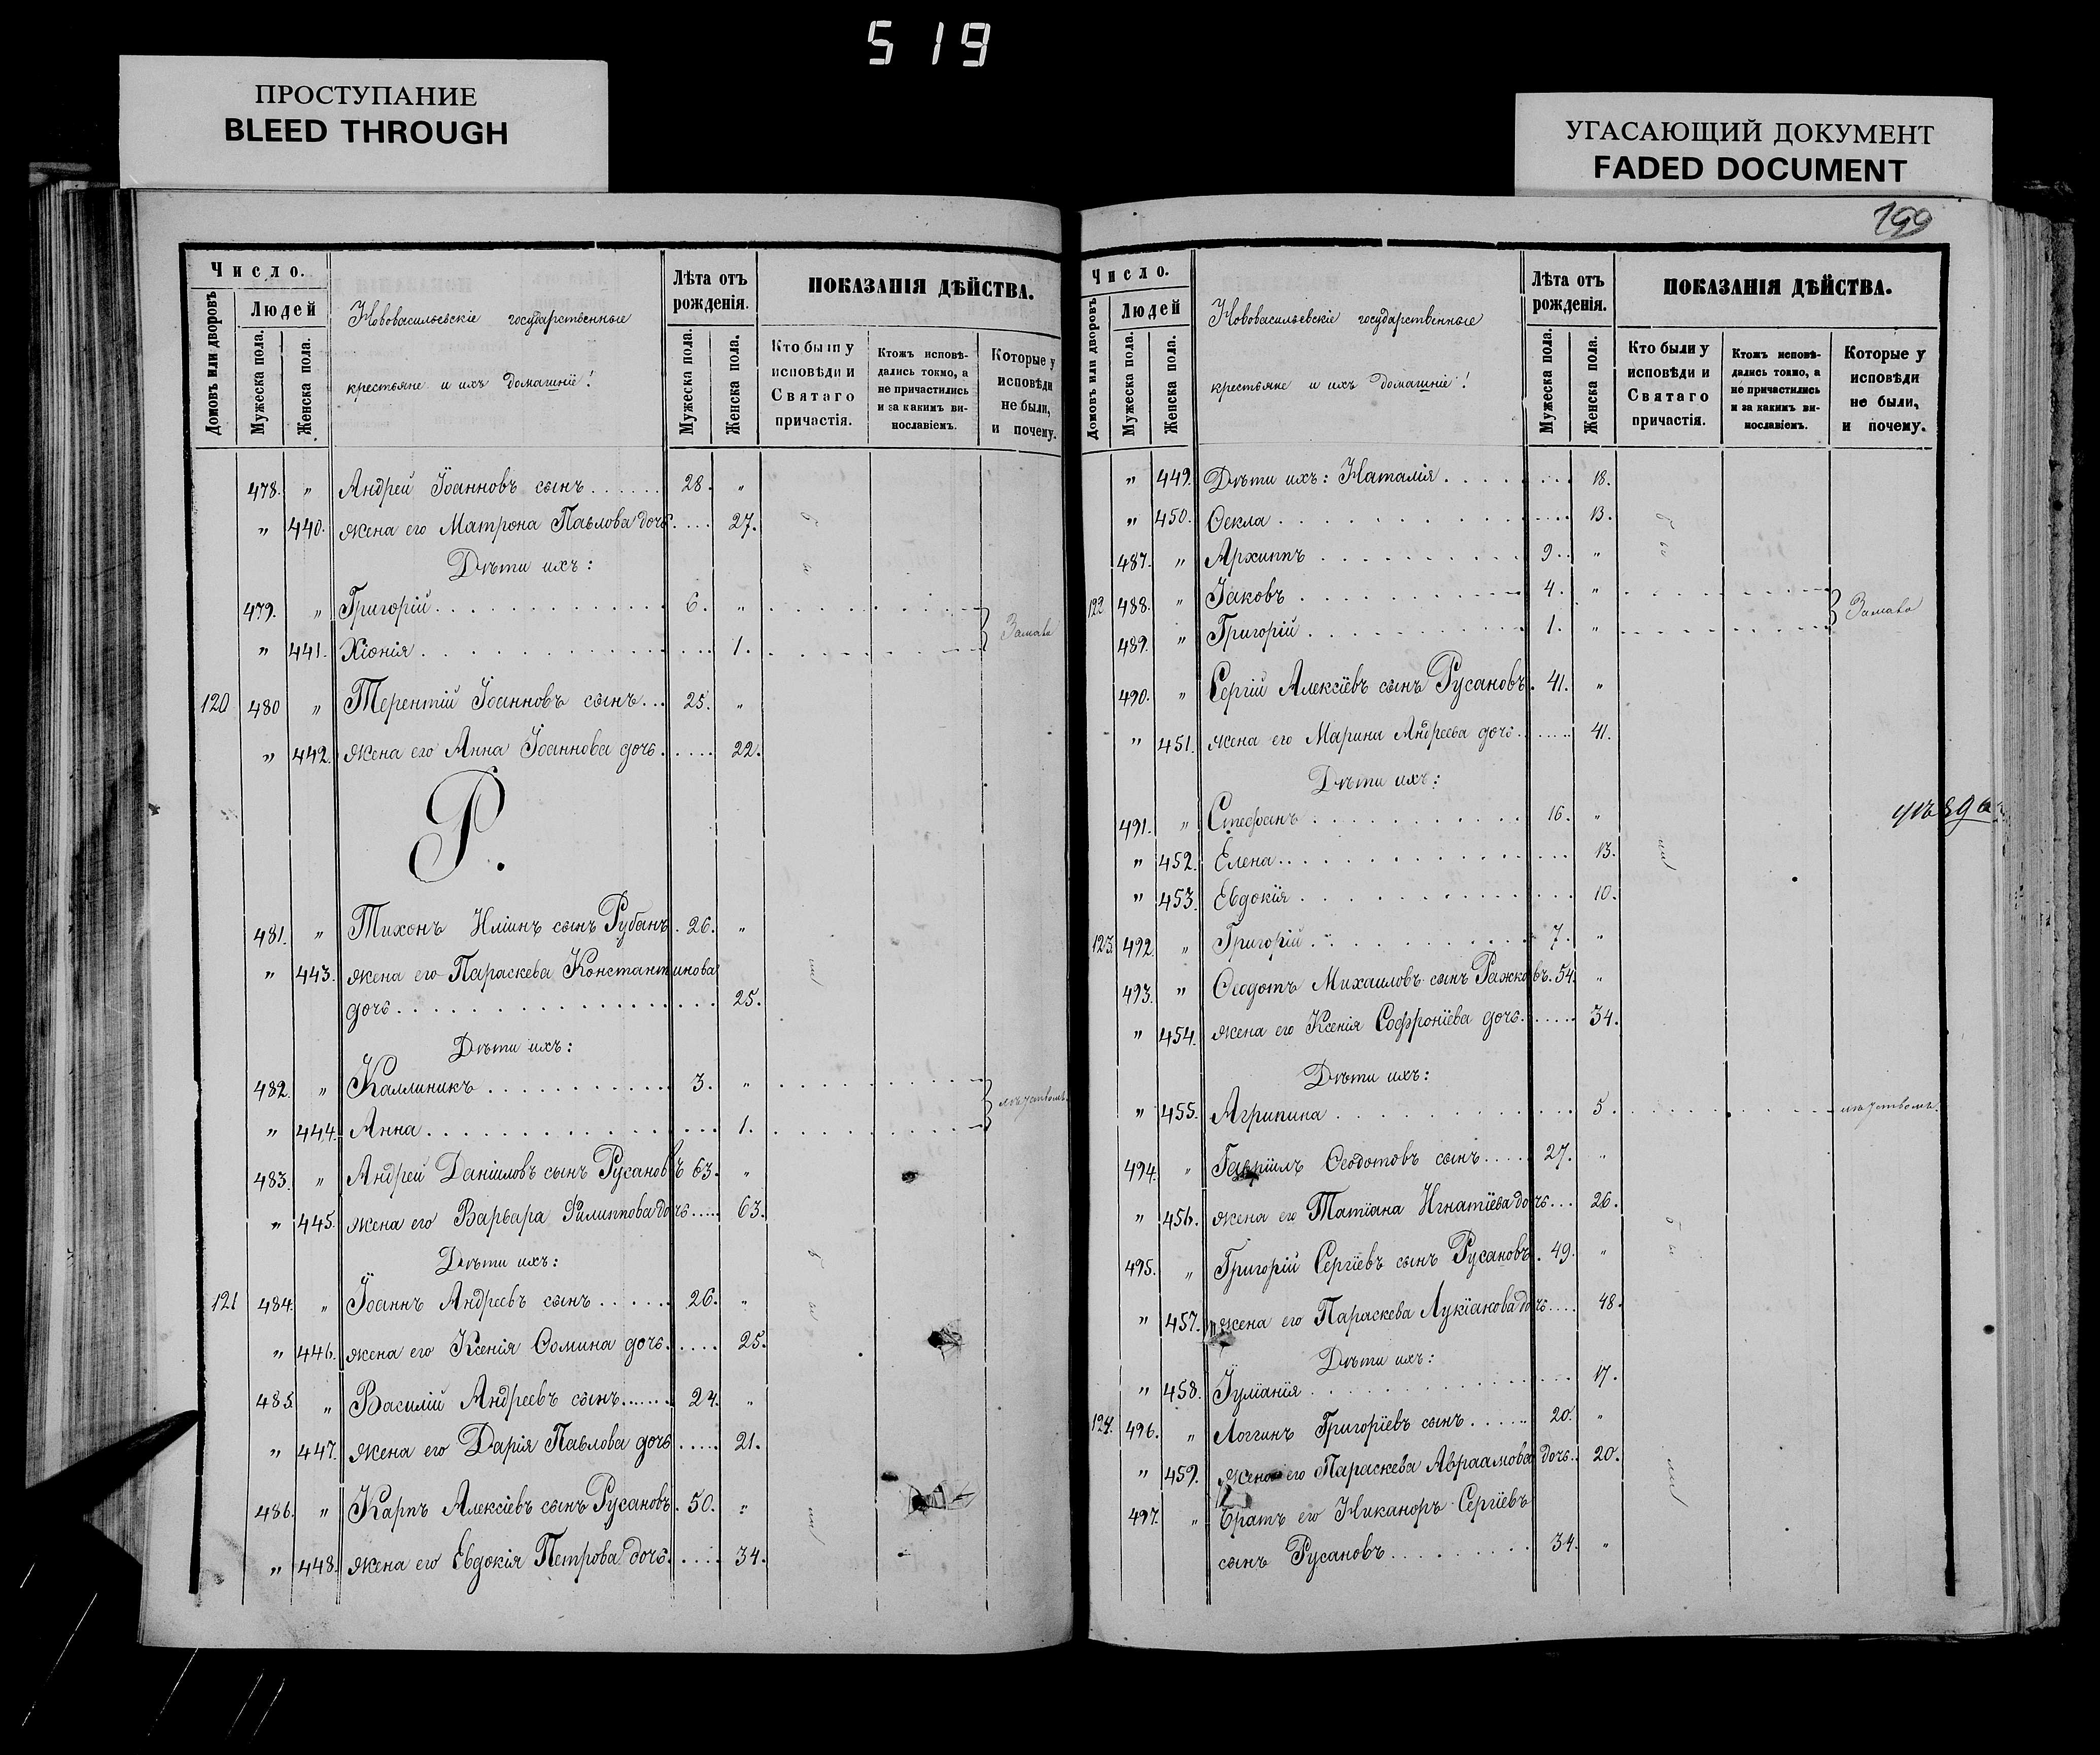 519
ПРОСТУПАНИЕ
BLEED THROUGH
УГАСАЮЩИЙ ДОКУМЕНТ
FADED DOCUMENT
Число.
Домовъ или дворовъ
Людей
Мужеска пола.
Женска пола.
Нововасильевскіе государственные
крестьяне и ихъ домашніе!
Лѣта отъ
рожденія.
Мужеска пола.
Женска пола.
ПОКАЗАНІЯ ДѢЙСТВА.
Кто были у
исповѣди и
Святаго
причастія.
Ктожъ исповѣ-
дались токмо, а
не причастились
и за какимъ ви-
нословіемъ.
Которые у
исповѣди
не были,
и почему.
478. " Андрей Іоанновъ сынъ . . . . . . 28. "
" 440. жена его Матрона Павлова дочь . . . . 27.
Дѣти ихъ:
479. " Григорій . . . . . . 6. "
" 441. Хіонія . . . . . . 1.
120 480 " Терентій Іоанновъ сынъ . . . 25. "
" 442. жена его Анна Іоаннова дочь . . . . . 22.
Р.
481. " Тихонъ Иліинъ сынъ Рубанъ . 26. "
" 443. жена его Параскева Константинова
дочь . . . . . . 25.
Дѣти ихъ:
482. " Каллиникъ . . . . . . 3. "
" 444. Анна . . . . . . 1.
483. " Андрей Даніиловъ сынъ Русановъ 63. "
" 445. жена его Варвара Филиппова дочь . . . . 63.
Дѣти ихъ:
121 484. " Іоаннъ Андреевъ сынъ . . . . . . 26. "
" 446. жена его Ксенія Ѳомина дочь . . . . . 25.
485. " Василій Андреевъ сынъ . . . . . . 24. "
" 447. жена его Дарія Павлова дочь . . . . 21.
486. " Карпъ Алексіевъ сынъ Русановъ . 50. "
" 448. жена его Евдокія Петрова дочь . . . . . 34.
199
Число.
Домовъ или дворовъ
Людей
Мужеска пола.
Женска пола.
Нововасильевскіе государственные
крестьяне и ихъ домашніе!
Лѣта отъ
рожденія.
Мужеска пола.
Женска пола.
ПОКАЗАНІЯ ДѢЙСТВА.
Кто были у
исповѣди и
Святаго
причастія.
Ктожъ исповѣ-
дались токмо, а
не причастились
и за какимъ ви-
нословіемъ.
Которые у
исповѣди
не были,
и почему.
" 449. Дѣти ихъ: Наталія . . . . . . 18.
" 450. Ѳекла . . . . . . 13.
487. " Архиппъ . . . . . . 9. "
122 488. " Іаковъ . . . . . . 4. "
489. " Григорій . . . . . . 1. "
490. " Сергій Алексіевъ сынъ Русановъ . 41. "
" 451. жена его Марина Андреева дочь . . . . . . 41.
Дѣти ихъ:
491. " Стефанъ . . . . . . 16. "
" 452. Елена . . . . . . 13.
" 453. Евдокія . . . . . . 10.
123. 492. " Григорій . . . . . . 7. "
493. " Ѳеодотъ Михаиловъ сынъ Ражковъ. 54. "
" 454. жена его Ксенія Софроніева дочь . . . . . . 34.
Дѣти ихъ:
" 455. Агрипина . . . . . . 5.
494. " Гавріилъ Ѳеодотовъ сынъ . . . . . 27. "
" 456. жена его Татіана Игнатіева дочь . . . 26.
495. " Григорій Сергіевъ сынъ Русановъ . 49. "
" 457. жена его Параскева Лукіанова дочь . . . . 48.
Дѣти ихъ:
" 458. Іуліанія . . . . . . 17.
124. 496. " Логгинъ Григоріевъ сынъ . . . . . . 20. "
" 459. жена его Параскева Авраамова дочь . . 20.
497. " Братъ его Никаноръ Сергіевъ
сынъ Русановъ . . . . . . 34. "